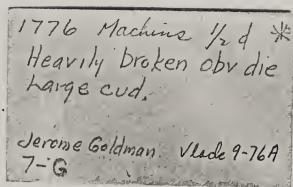 1776 Machins 1/2 d *
Heavily broken obv die
Large cud.
Jerome Goldman. Vlack 9-76A
7-G